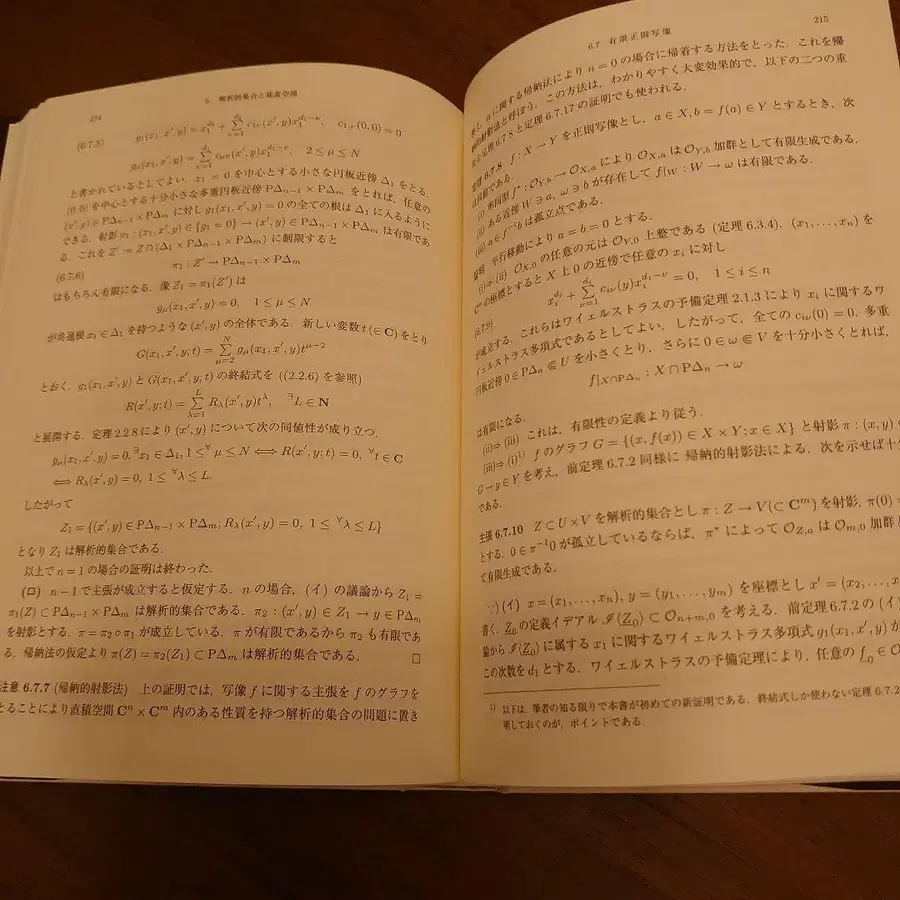 214
6. 解析的集合と複素空間
(6.7.5) g₁(x₁, x′, y) = x₁^{d₁} + Σ_{ν=1}^{d₁} c_{1ν}(x′, y)x₁^{d₁−ν}, c_{1,ν}(0, 0) = 0
g_μ(x₁, x′, y) = Σ_{ν=1}^{d₁} c_{μν}(x′, y)x₁^{d₁−ν}, 2 ≤ μ ≤ N
と書かれているとしてよい. x₁ = 0 を中心とする小さな円板近傍 Δ₁ をとる.
(0, 0) を中心とする十分小さな多重円板近傍 PΔ_{n−1} × PΔ_m をとれば, 任意の
(x′, y) ∈ PΔ_{n−1} × PΔ_m に対し g₁(x₁, x′, y) = 0 の全ての根は Δ₁ に入るように
できる. 射影 π₁ : (x₁, x′, y) ∈ {g₁ = 0} → (x′, y) ∈ PΔ_{n−1} × PΔ_m は有限であ
る. これを Z′ := Z ∩ (Δ₁ × PΔ_{n−1} × PΔ_m) に制限すると
(6.7.6) π₁ : Z′ → PΔ_{n−1} × PΔ_m
はもちろん有限になる. 像 Z₁ = π₁(Z′) は
g_μ(x₁, x′, y) = 0, 1 ≤ μ ≤ N
が共通根 x₁ ∈ Δ₁ を持つような (x′, y) の全体である. 新しい変数 t (∈ C) をとり
G(x₁, x′, y; t) = Σ_{μ=2}^{N} g_μ(x₁, x′, y)t^{μ−2}
とおく. g₁(x₁, x′, y) と G(x₁, x′, y; t) の終結式を ((2.2.6) を参照)
R(x′, y; t) = Σ_{λ=1}^{L} R_λ(x′, y)t^λ, ∃L ∈ N
と展開する. 定理 2.2.8 により (x′, y) について次の同値性が成り立つ.
g_μ(x₁, x′, y) = 0, ∃x₁ ∈ Δ₁, 1 ≤ ∀μ ≤ N ⟺ R(x′, y; t) = 0, ∀t ∈ C
⟺ R_λ(x′, y) = 0, 1 ≤ ∀λ ≤ L.
したがって
Z₁ = {(x′, y) ∈ PΔ_{n−1} × PΔ_m; R_λ(x′, y) = 0, 1 ≤ ∀λ ≤ L}
となり Z₁ は解析的集合である.
以上で n = 1 の場合の証明は終わった.
(ロ) n − 1 で主張が成立すると仮定する. n の場合, (イ) の議論から Z₁ =
π₁(Z) ⊂ PΔ_{n−1} × PΔ_m は解析的集合である. π₂ : (x′, y) ∈ Z₁ → y ∈ PΔ_m
を射影とする. π = π₂ ∘ π₁ が成立している. π が有限であるから π₂ も有限であ
る. 帰納法の仮定より π(Z) = π₂(Z₁) ⊂ PΔ_m は解析的集合である. □
注意 6.7.7 (帰納的射影法) 上の証明では, 写像 f に関する主張を f のグラフを
とることにより直積空間 Cⁿ × Cᵐ 内のある性質を持つ解析的集合の問題に置き
6.7 有限正則写像
215
換え, n に関する帰納法により n = 0 の場合に帰着する方法をとった. これを帰
納的射影法と呼ぼう. この方法は, わかりやすく大変効果的で, 以下の二つの重
要な定理 6.7.8 と定理 6.7.17 の証明でも使われる.
定理 6.7.8 f : X → Y を正則写像とし, a ∈ X, b = f(a) ∈ Y とするとき, 次
は同値である.
(i) 準同型 f* : O_{Y,b} → O_{X,a} により O_{X,a} は O_{Y,b} 加群として有限生成である.
(ii) ある近傍 W ∋ a, ω ∋ b が存在して f|_W : W → ω は有限である.
(iii) a ∈ f⁻¹b は孤立点である.
証明 平行移動により a = b = 0 とする.
(i)⇒(ii) O_{X,0} の任意の元は O_{Y,0} 上整である (定理 6.3.4). (x₁, . . . , xₙ) を
Cⁿ の座標とすると X 上 0 の近傍で任意の x_i に対し
(6.7.9) x_i^{d_i} + Σ_{ν=1}^{d_i} c_{iν}(y)x_i^{d_i−ν} = 0, 1 ≤ i ≤ n
が成立する. これらはワイエルストラスの予備定理 2.1.3 により x_i に関するワ
イエルストラス多項式であるとしてよい. したがって, 全ての c_{iν}(0) = 0. 多重
円板近傍 0 ∈ PΔₙ ⋐ U を小さくとり, さらに 0 ∈ ω ⋐ V を十分小さくとれば,
f|_{X∩PΔₙ} : X ∩ PΔₙ → ω
は有限になる.
(ii)⇒(iii) これは, 有限性の定義より従う.
(iii)⇒(i)¹⁾ f のグラフ G = {(x, f(x)) ∈ X × Y; x ∈ X} と射影 π : (x, y) ∈
G → y ∈ Y を考え, 前定理 6.7.2 同様に 帰納的射影法による. 次を示せば十
である.
主張 6.7.10 Z ⊂ U × V を解析的集合とし π : Z → V(⊂ Cᵐ) を射影, π(0) =
とする. 0 ∈ π⁻¹0 が孤立しているならば, π* によって O_{Z,a} は O_{m,0} 加群と
て有限生成である.
∵) (イ) x = (x₁, . . . , xₙ), y = (y₁, . . . , y_m) を座標とし x′ = (x₂, . . . , x
書く. Z₀ の定義イデアル ℐ⟨Z₀⟩ ⊂ O_{n+m,0} を考える. 前定理 6.7.2 の (イ
論から ℐ⟨Z₀⟩ に属する x₁ に関するワイエルストラス多項式 g₁(x₁, x′, y) が
この次数を d₁ とする. ワイエルストラスの予備定理により, 任意の f₀ ∈ O
1) 以下は, 筆者の知る限りで本書が初めての新証明である. 終結式しか使わない定理 6.7.2
明しておくのが, ポイントである.